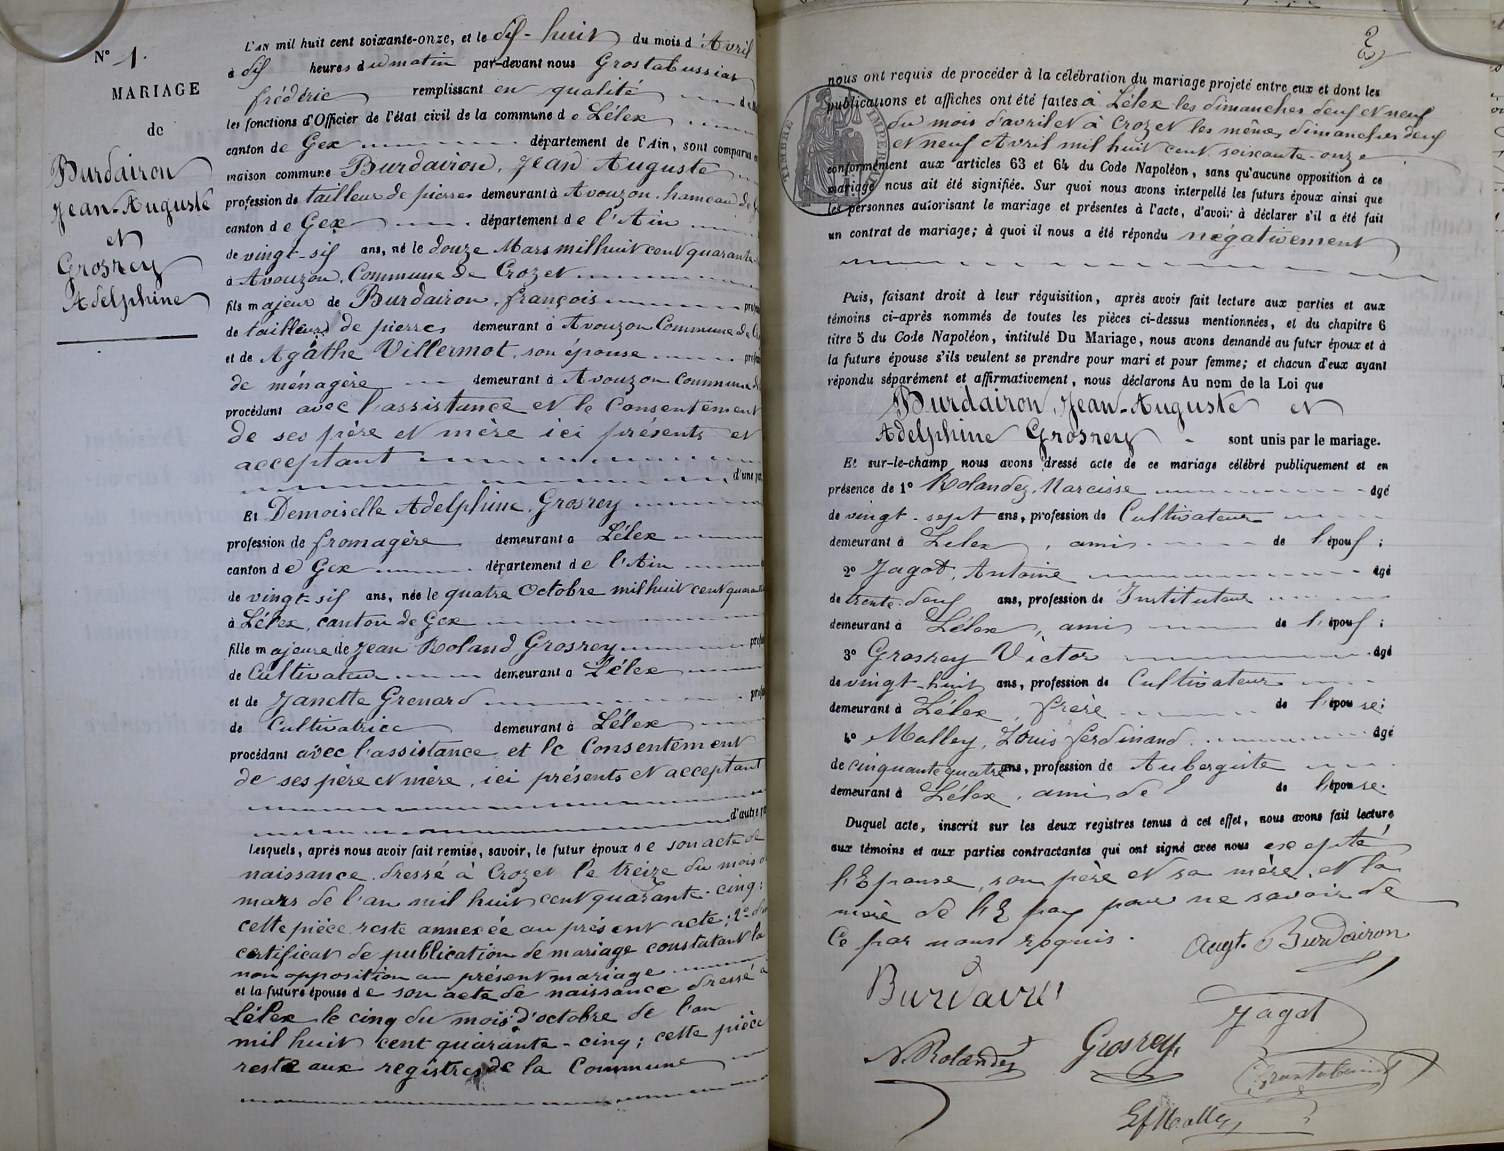 N° 1.
MARIAGE
de
Burdairon
Jean-Auguste
et
Grosrey
Adelphine
L'AN mil huit cent soixante-onze, et le dif-huit du mois d'Avril
à dif heures du matin par-devant nous Grostabussiat
frédéric remplissant en qualité
les fonctions d'Officier de l'état civil de la commune de Lélex
canton de Gex département de l'Ain, sont comparus
maison commune Burdairon, Jean Auguste
profession de tailleur de pierres demeurant à Avouzon, hameau de
canton de Gex département de l'Ain
de vingt-sif ans, né le douze Mars mil huit cent quarante
à Avouzon, Commune de Crozet
fils majeur de Burdairon, françois
de tailleur de pierres demeurant à Avouzon Commune de
et de Agathe Villermot, son épouse
de ménagère demeurant à Avouzon Commune
procédant avec l'assistance et le Consentement
de ses père et mère ici présents et
acceptant
d'une
Et Demoiselle Adelphine Grosrey
profession de fromagère demeurant à Lélex
canton de Gex département de l'Ain
de vingt-sif ans, née le quatre Octobre mil huit cent quarante
à Lélex, canton de Gex
fille majeure de Jean Roland Grosrey
de Cultivateur demeurant à Lélex
et de Janette Grenard
de Cultivatrice demeurant à Lélex
procédant avec l'assistance et le Consentement
de ses père et mère, ici présents et acceptant
d'autre
Lesquels, après nous avoir fait remise, savoir, le futur époux de son acte de
naissance dressé à Crozet le treize du mois
mars de l'an mil huit cent quarante-cinq;
cette pièce reste annexée au présent acte; 2°
certificat de publication de mariage constatant la
non opposition au présent mariage
et la future épouse de son acte de naissance dressé à
Lélex le cinq du mois d'octobre de l'an
mil huit cent quarante-cinq; cette pièce
reste aux registres de la Commune
2
nous ont requis de procéder à la célébration du mariage projeté entre eux et dont les
publications et affiches ont été faites à Lélex les dimanches deuf et neuf
du mois d'avril et à Crozet les mêmes dimanches deuf
et neuf Avril mil huit cent soixante-onze
conformément aux articles 63 et 64 du Code Napoléon, sans qu'aucune opposition à ce
mariage nous ait été signifiée. Sur quoi nous avons interpellé les futurs époux ainsi que
les personnes autorisant le mariage et présentes à l'acte, d'avoir à déclarer s'il a été fait
un contrat de mariage; à quoi il nous a été répondu négativement
TIMBRE IMPERIAL
Puis, faisant droit à leur réquisition, après avoir fait lecture aux parties et aux
témoins ci-après nommés de toutes les pièces ci-dessus mentionnées, et du chapitre 6
titre 5 du Code Napoléon, intitulé Du Mariage, nous avons demandé au futur époux et à
la future épouse s'ils veulent se prendre pour mari et pour femme; et chacun d'eux ayant
répondu séparément et affirmativement, nous déclarons Au nom de la Loi que
Burdairon, Jean-Auguste et
Adelphine Grosrey sont unis par le mariage.
Et sur-le-champ nous avons dressé acte de ce mariage célébré publiquement et en
présence de 1° Rolandez, Narcisse âgé
de vingt-sept ans, profession de Cultivateur
demeurant à Lélex, ami de l'épouf;
2° Jagot, Antoine âgé
de trente-deuf ans, profession de Instituteur
demeurant à Lélex, ami de l'épouf;
3° Grosrey Victor âgé
de vingt-huit ans, profession de Cultivateur
demeurant à Lélex, frère de l'épouse;
4° Malley, Louis ferdinand âgé
de cinquante quatre ans, profession de Aubergiste
demeurant à Lélex, ami de de l'épouse.
Duquel acte, inscrit sur les deux registres tenus à cet effet, nous avons fait lecture
aux témoins et aux parties contractantes qui ont signé avec nous excepté
l'Epouse, son père et sa mère, et la
mère de l'Epouf pour ne savoir de
ce par nous requis.
Augt. Burdairon
Jagot
N. Rolandez
Grosrey